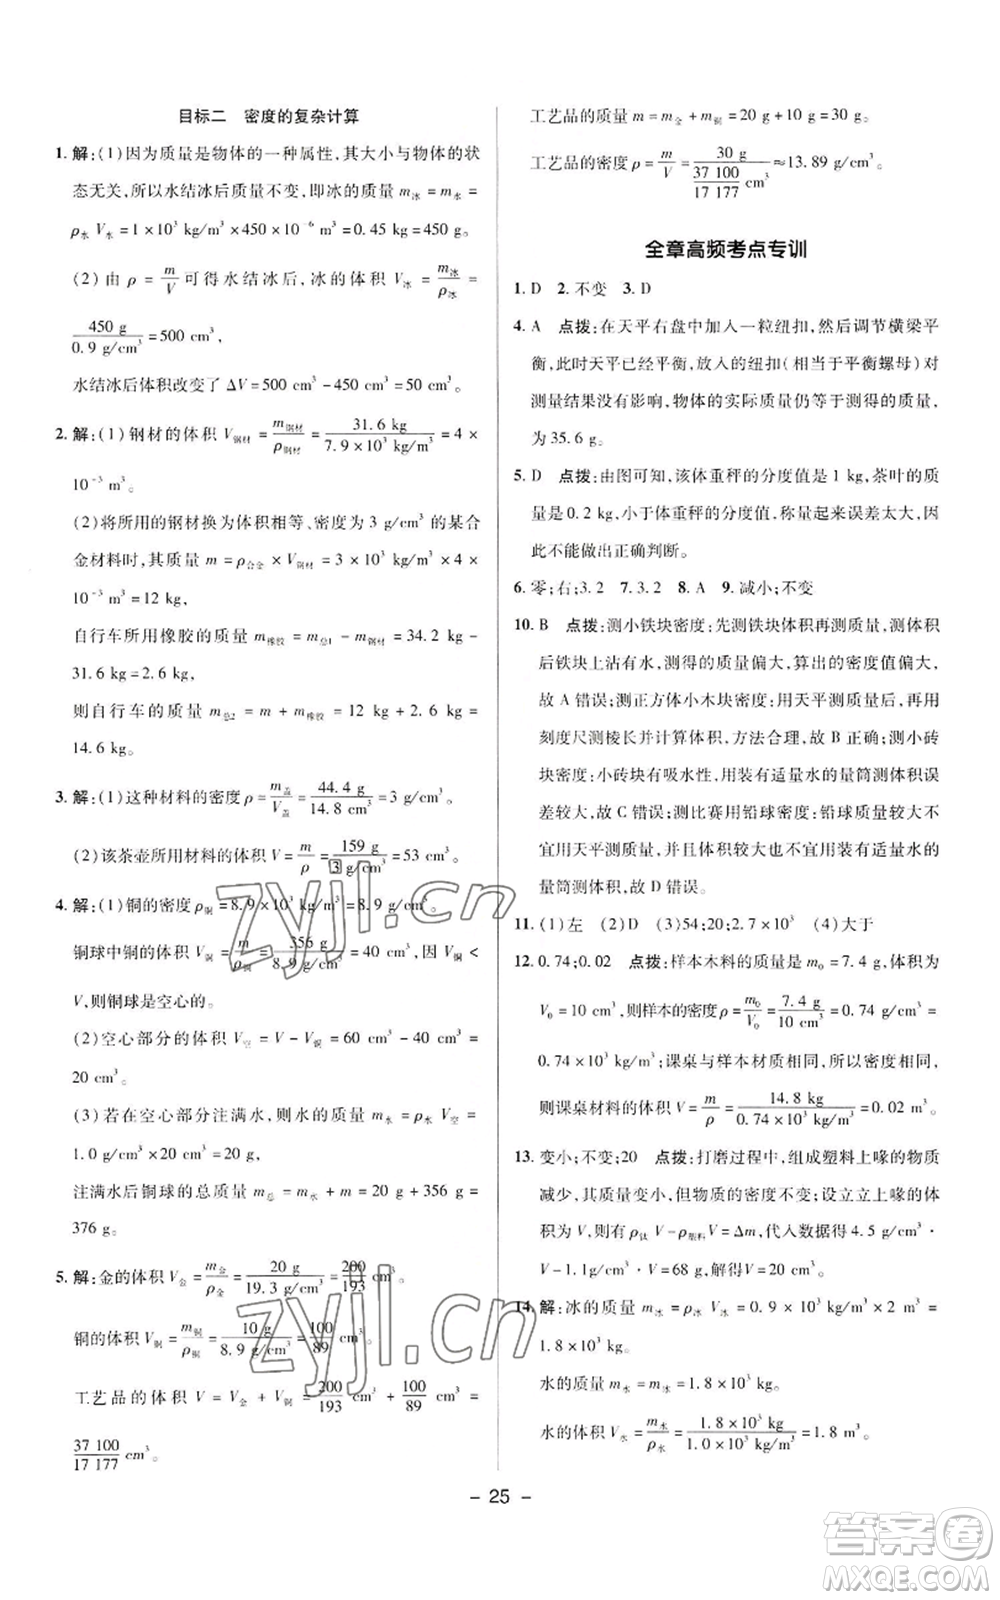 目标二　密度的复杂计算
1. 解:(1)因为质量是物体的一种属性,其大小与物体的状
态无关,所以水结冰后质量不变,即冰的质量 m冰 = m水 =
ρ水 V水 = 1×10³ kg/m³×450×10⁻⁶ m³ = 0.45 kg = 450 g。
(2) 由 ρ = m/V 可得水结冰后,冰的体积 V冰 = m冰/ρ冰 =
450 g/0.9 g/cm³ = 500 cm³,
水结冰后体积改变了 ΔV = 500 cm³ - 450 cm³ = 50 cm³。
2. 解:(1)钢材的体积 V钢材 = m钢材/ρ钢材 = 31.6 kg/7.9×10³ kg/m³ = 4 ×
10⁻³ m³。
(2)将所用的钢材换为体积相等、密度为 3 g/cm³ 的某合
金材料时,其质量 m = ρ合金 × V钢材 = 3 × 10³ kg/m³ × 4 ×
10⁻³ m³ = 12 kg,
自行车所用橡胶的质量 m橡胶 = m总1 - m钢材 = 34.2 kg -
31.6 kg = 2.6 kg,
则自行车的质量 m总2 = m + m橡胶 = 12 kg + 2.6 kg =
14.6 kg。
3. 解:(1)这种材料的密度 ρ = m盖/V盖 = 44.4 g/14.8 cm³ = 3 g/cm³。
(2)该茶壶所用材料的体积 V = m/ρ = 159 g/3 g/cm³ = 53 cm³。
4. 解:(1)铜的密度 ρ铜 = 8.9×10³ kg/m³ = 8.9 g/cm³,
铜球中铜的体积 V铜 = m/ρ铜 = 356 g/8.9 g/cm³ = 40 cm³,因 V铜 <
V,则铜球是空心的。
(2)空心部分的体积 V空 = V - V铜 = 60 cm³ - 40 cm³ =
20 cm³。
(3)若在空心部分注满水,则水的质量 m水 = ρ水 V空 =
1.0 g/cm³×20 cm³ = 20 g,
注满水后铜球的总质量 m总 = m水 + m = 20 g + 356 g =
376 g。
5. 解:金的体积 V金 = m金/ρ金 = 20 g/19.3 g/cm³ = 200/193 cm³,
铜的体积 V铜 = m铜/ρ铜 = 10 g/8.9 g/cm³ = 100/89 cm³,
工艺品的体积 V = V金 + V铜 = 200/193 cm³ + 100/89 cm³ =
37 100/17 177 cm³。
工艺品的质量 m = m金 + m铜 = 20 g + 10 g = 30 g,
工艺品的密度 ρ = m/V = 30 g/(37 100/17 177 cm³) ≈ 13.89 g/cm³。
全章高频考点专训
1. D　2. 不变　3. D
4. A　点拨:在天平右盘中加入一粒纽扣,然后调节横梁平
衡,此时天平已经平衡,放入的纽扣(相当于平衡螺母)对
测量结果没有影响,物体的实际质量仍等于测得的质量,
为 35.6 g。
5. D　点拨:由图可知,该体重秤的分度值是 1 kg,茶叶的质
量是 0.2 kg,小于体重秤的分度值,称量起来误差太大,因
此不能做出正确判断。
6. 零;右;3.2　7. 3.2　8. A　9. 减小;不变
10. B　点拨:测小铁块密度:先测铁块体积再测质量,测体积
后铁块上沾有水,测得的质量偏大,算出的密度值偏大,
故 A 错误;测正方体小木块密度:用天平测质量,用
刻度尺测棱长并计算体积,方法合理,故 B 正确;测小砖
块密度:小砖块有吸水性,用装有适量水的量筒测体积误
差较大,故 C 错误;测比赛用铅球密度:铅球质量较大不
宜用天平测质量,并且体积较大也不宜用装有适量水的
量筒测体积,故 D 错误。
11. (1)左　(2)D　(3)54;20;2.7×10³　(4)大于
12. 0.74;0.02　点拨:样本木料的质量是 m₀ = 7.4 g,体积为
V₀ = 10 cm³,则样本的密度 ρ = m₀/V₀ = 7.4 g/10 cm³ = 0.74 g/cm³ =
0.74×10³ kg/m³;课桌与样本材质相同,所以密度相同,
则课桌材料的体积 V = m/ρ = 14.8 kg/0.74×10³ kg/m³ = 0.02 m³。
13. 变小;不变;20　点拨:打磨过程中,组成塑料上喙的物质
减少,其质量变小,但物质的密度不变;设立立上喙的体
积为 V,则有 ρ钛 V - ρ塑料 V = Δm,代入数据得 4.5 g/cm³ ·
V - 1.1g/cm³ · V = 68 g,解得 V = 20 cm³。
14. 解:冰的质量 m冰 = ρ冰 V冰 = 0.9 × 10³ kg/m³ × 2 m³ =
1.8×10³ kg。
水的质量 m水 = m冰 = 1.8×10³ kg,
水的体积 V水 = m水/ρ水 = 1.8×10³ kg/1.0×10³ kg/m³ = 1.8 m³。
- 25 -
zyjl.cn
zyjl.cn
答案圈
MXQE.COM